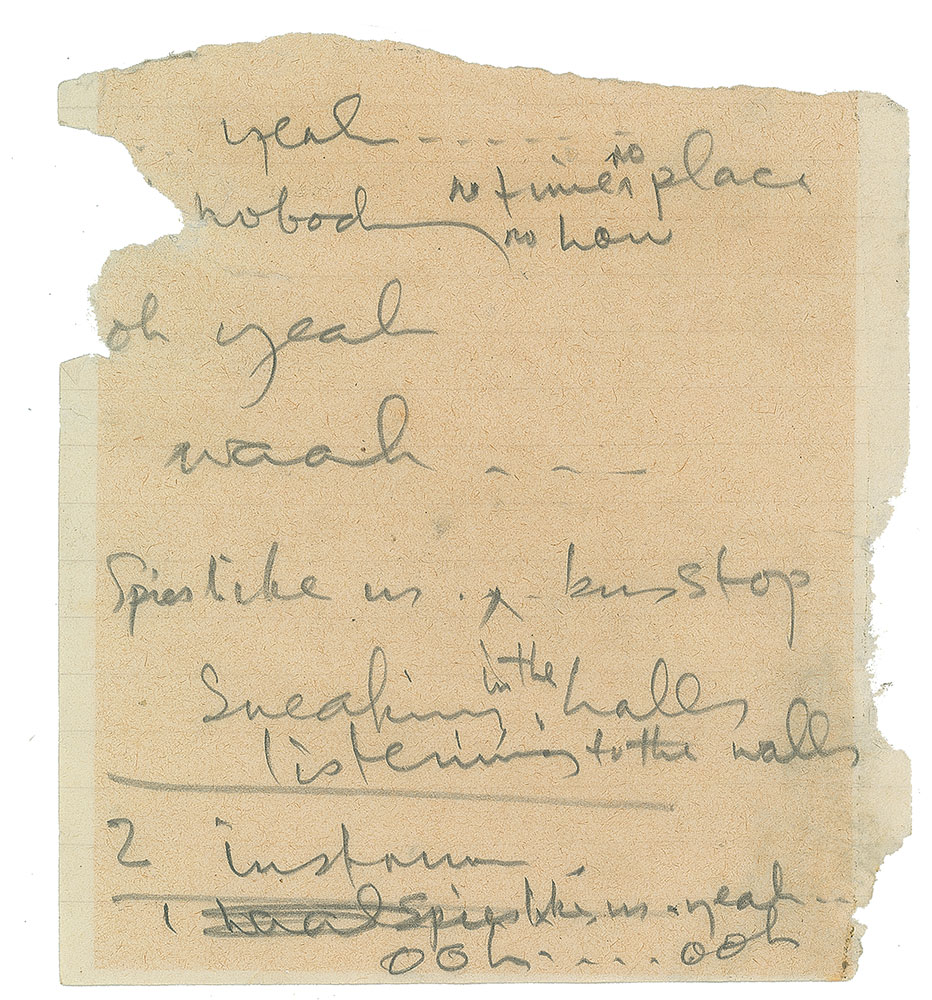 yeah - - - - - -
no time no no place
nobody no how
oh yeah
waaah - - - -
Spies like us . x - bus stop
Sneaking in the halls
listening to the walls
2 instrum
1 Spies like us . yeah - - -
ooh - . . . . ooh